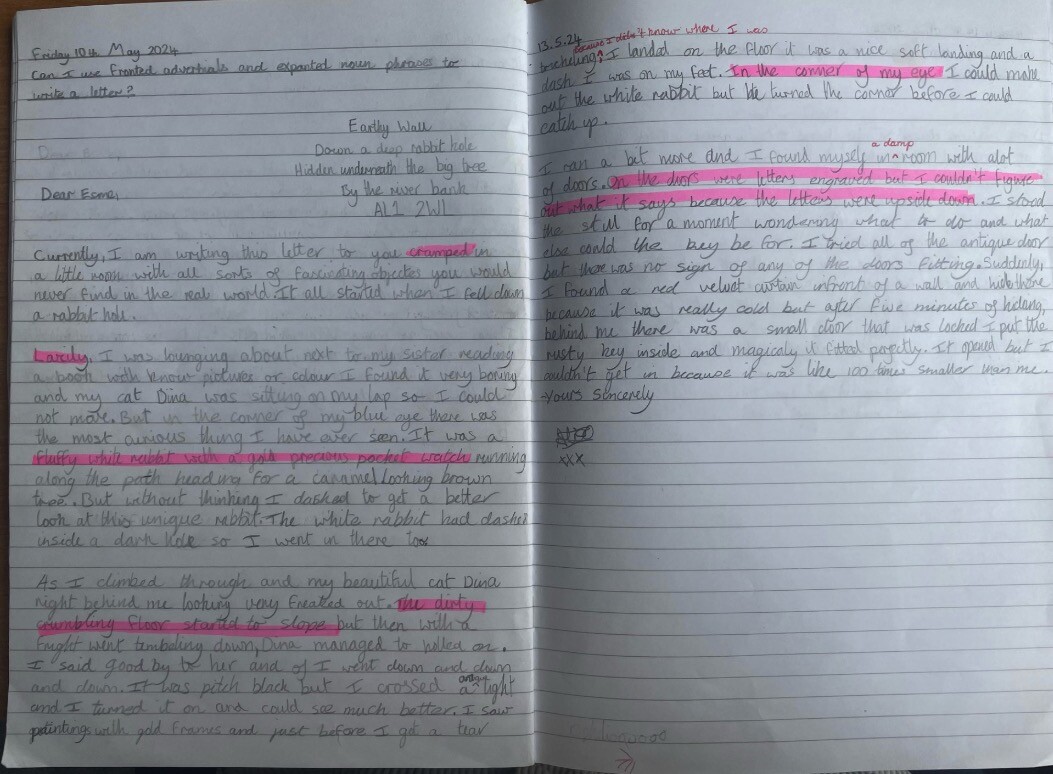 Friday 10th May 2024
Can I use fronted adverbials and expanted noun phrases to
write a letter?
Earthy Wall
Down a deep rabbit hole
Hidden underneath the big tree
By the river bank
AL1 2WL
Dear Esme,
Currently, I am writing this letter to you cramped in
a little room with all sorts of fascinating objectes you would
never find in the real world. It all started when I fell down
a rabbit hole.
Lazily, I was lounging about next to my sister reading
a book with know pictures or colour I found it very boring
and my cat Dina was sitting on my lap so I could
not move. But in the corner of my blue eye there was
the most curious thing I have ever seen. It was a
fluffy white rabbit with a gold precious pocket watch running
along the path heading for a caramel looking brown
tree. But without thinking I dashed to get a better
look at this unique rabbit. The white rabbit had dashed
inside a dark hole so I went in there too.
As I climbed through and my beautiful cat Dina
right behind me looking very freaked out. The dirty
crumbling floor started to slope but then with a
fright went tumbeling down, Dina managed to holled on.
I said good by to her and of I went down and down
and down. It was pitch black but I crossed a antique light
and I turned it on and could see much better. I saw
paintings with gold frames and just before I got a tear
13.5.24
because I didn't know where I was
I landed on the floor it was a nice soft landing and a
dash I was on my feet. In the corner of my eye I could make
out the white rabbit but he turned the corner before I could
catch up.
I ran a bit more and I found myself in a damp room with alot
of doors. On the doors were letters engraved but I couldn't figure
out what it says because the letters were upside down. I stood
the still for a moment wondering what to do and what
else could the key be for. I tried all of the antique door
but there was no sign of any of the doors fitting. Suddenly,
I found a red velvet curtain infront of a wall and hide there
because it was really cold but after five minutes of hideing,
behind me there was a small door that was locked I put the
rusty key inside and magicaly it fitted perfectly. It opened but I
couldn't get in because it was like 100 times smaller than me.
-Yours Sincerely
xxx